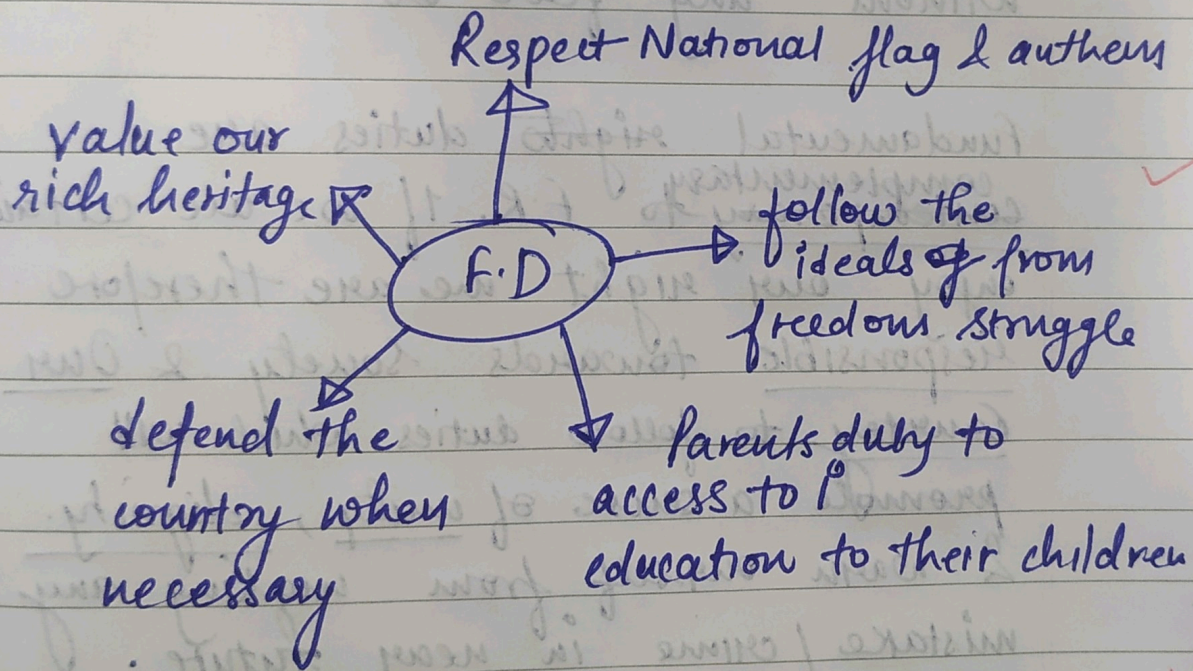 Respect National flag & anthem
value our
rich heritage
F.D
follow the
ideals from
freedom struggle
defend the
country when
necessary
Parents duty to
access to
education to their children